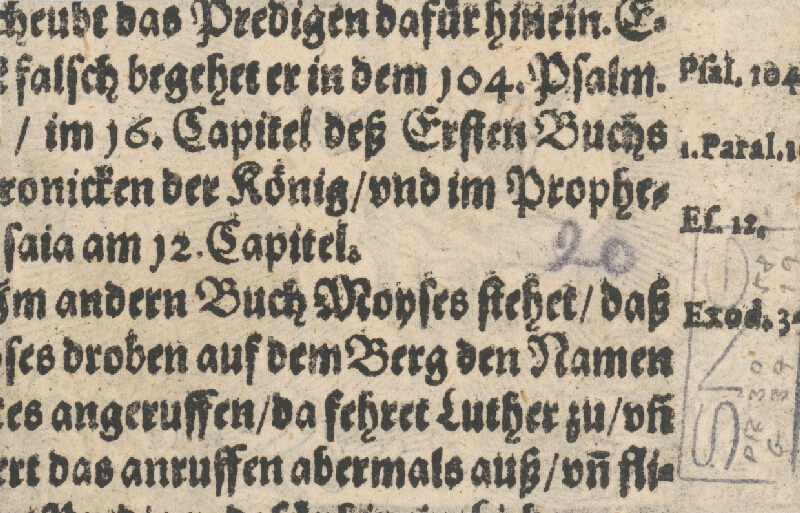 das Predigen dafür hinein. E-
falsch begehet er in dem 104. Psalm.
/ im 16. Capitel deß Ersten Buchs
ronicken der König/vnd im Prophe-
saia am 12. Capitel.
andern Buch Moyses stehet/ daß
ses droben auf dem Berg den Namen
tes angeruffen/da fehret Luther zu/vñ
ert das anruffen abermals auß/vñ fli-
Psal. 104
1. Paral. 1
Es. 12.
Exod. 3
20